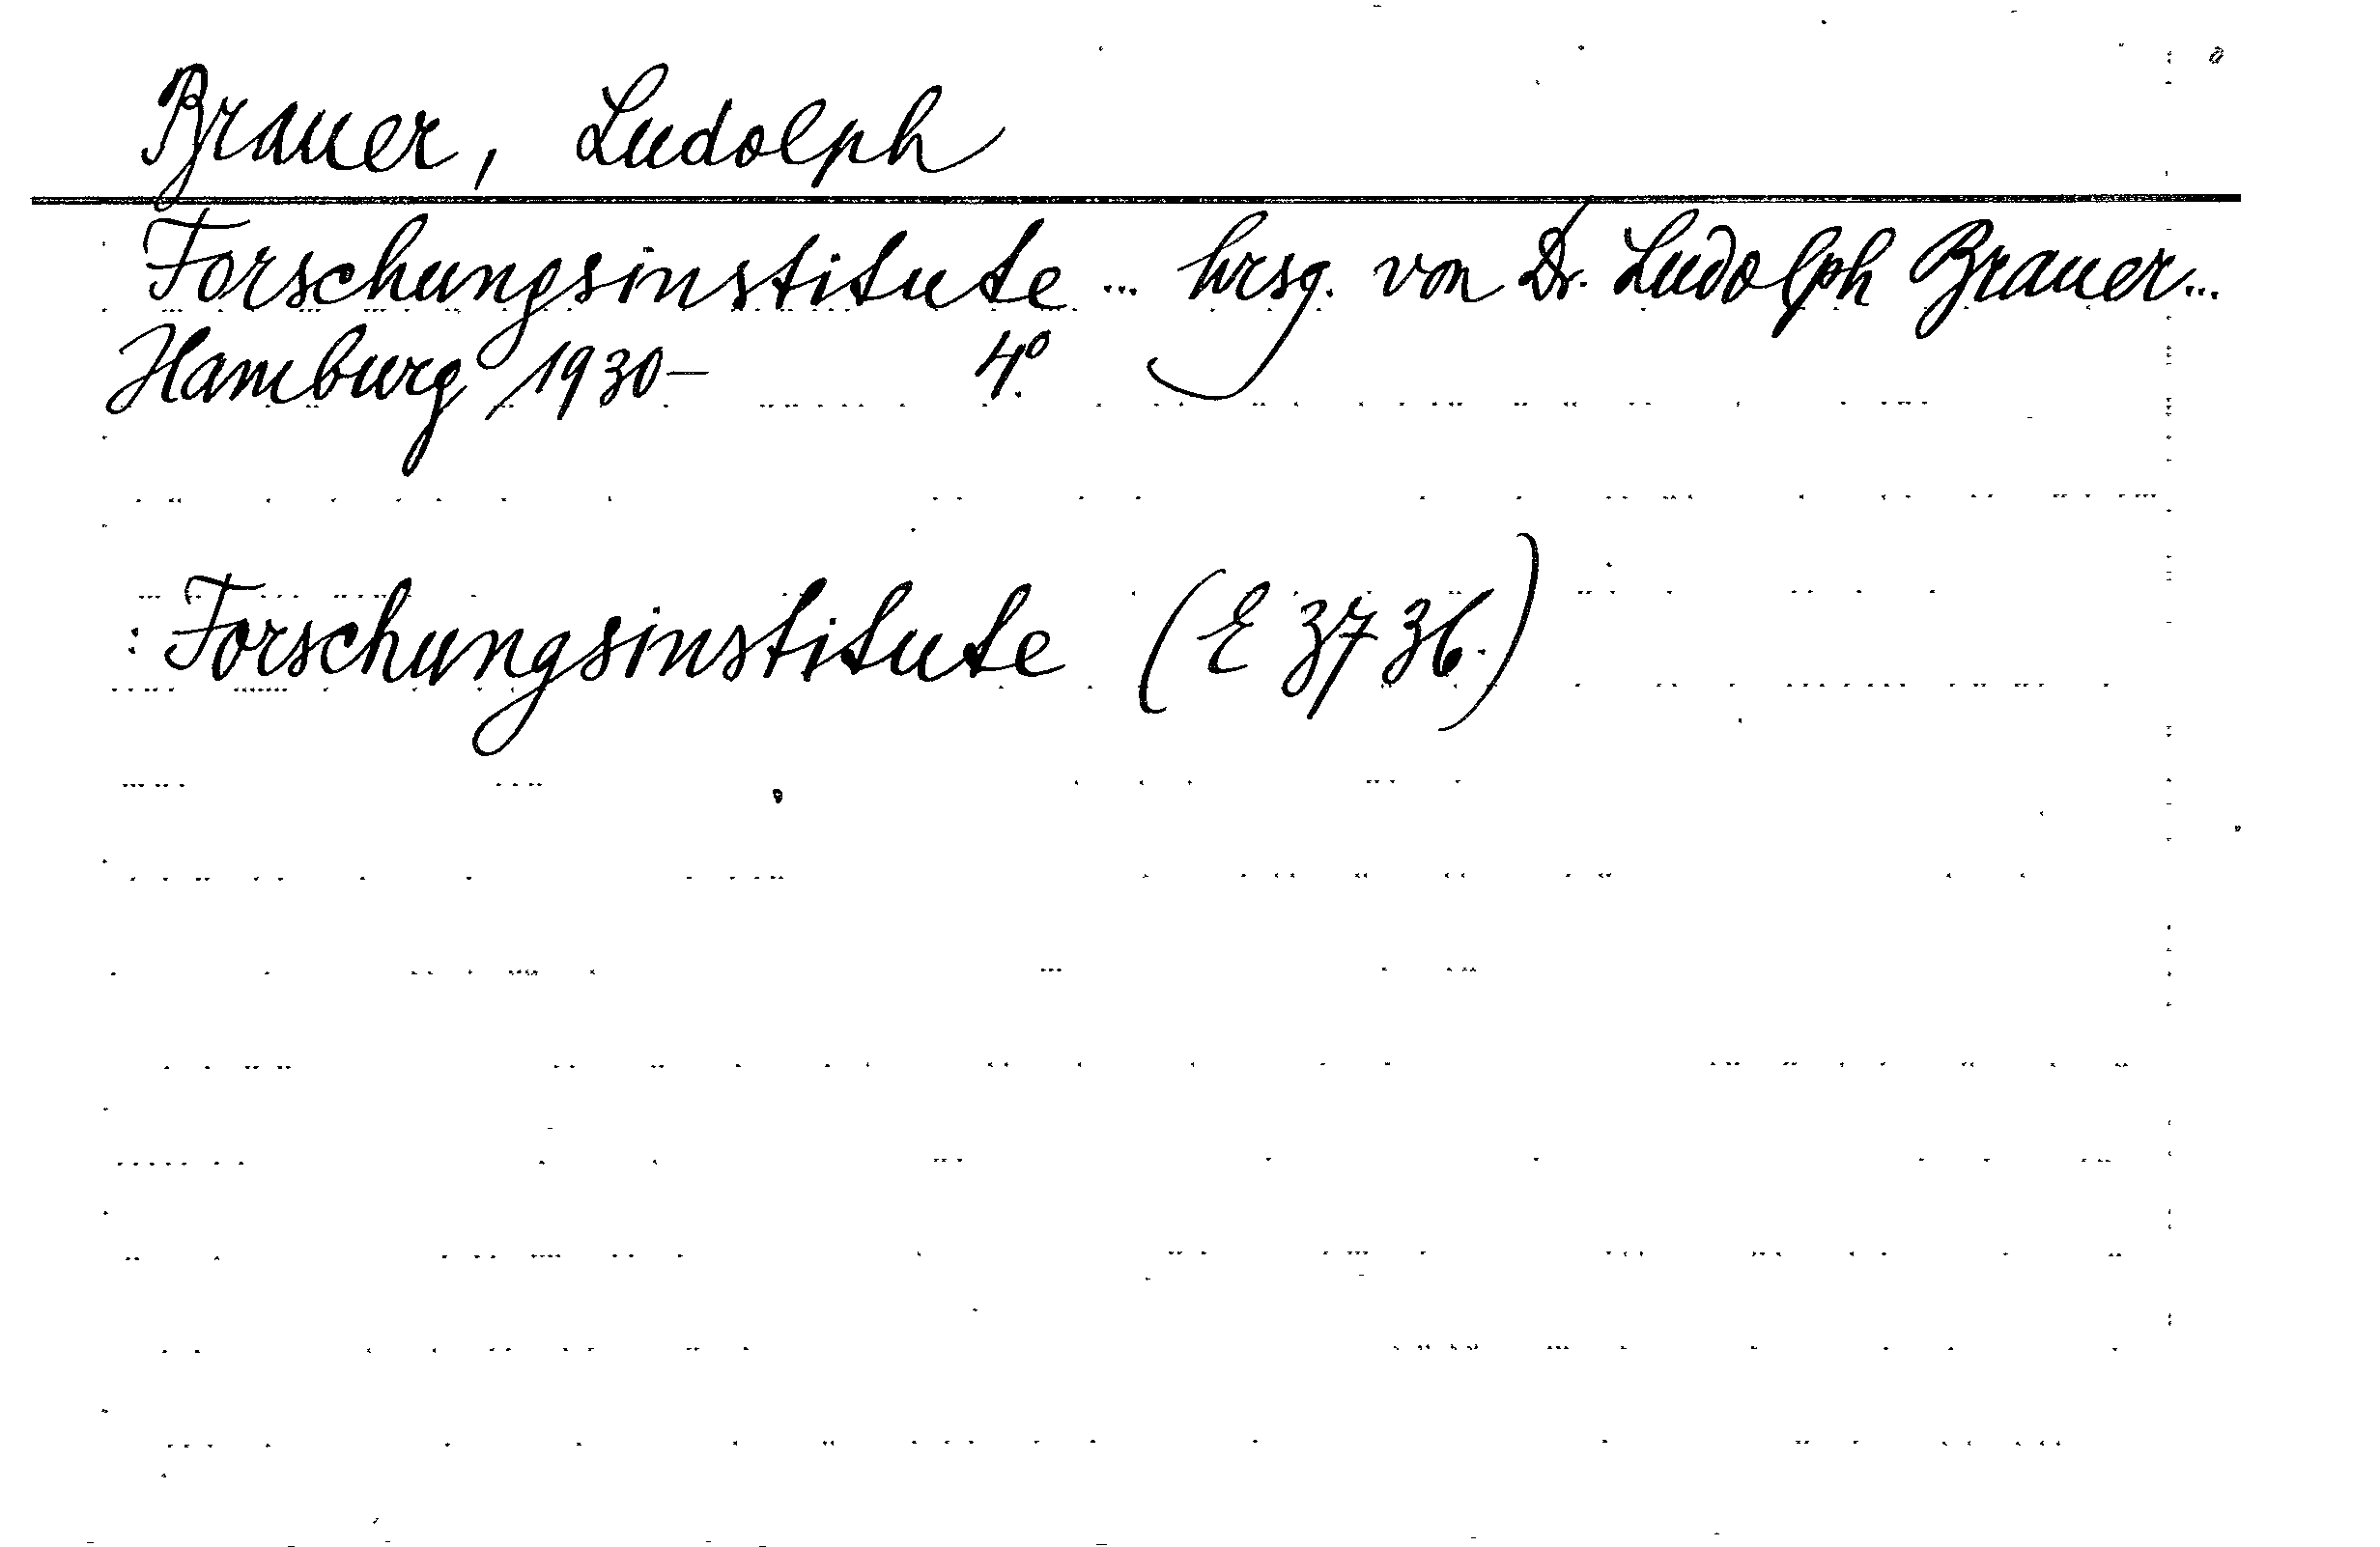 Brauer, Ludolph
Forschungsinstitute ... hrsg. von Dr. Ludolph Brauer...
Hamburg 1930– 4º.
: Forschungsinstitute (E 3736.)